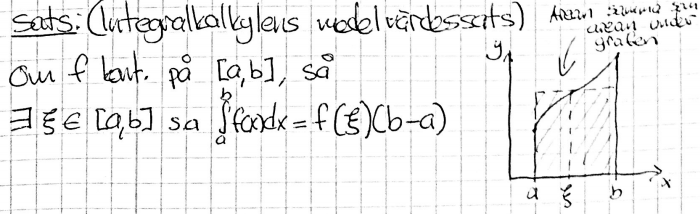 Sats: (Integralkalkylens medelvärdessats)
Om f kont. på [a,b], så
∃ ξ ∈ [a,b] sa ∫_a^b f(x)dx = f(ξ)(b-a)
Arean samma som
arean under
grafen
y
a ξ b x